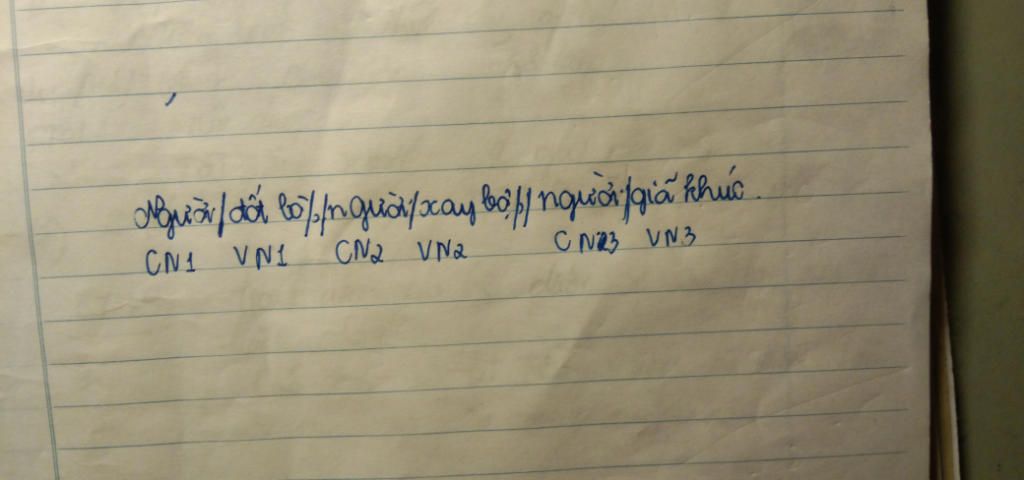 Người/đốt lò/,/người/xay bột/,/người/giã khúc.
CN1 VN1 CN2 VN2 CN3 VN3